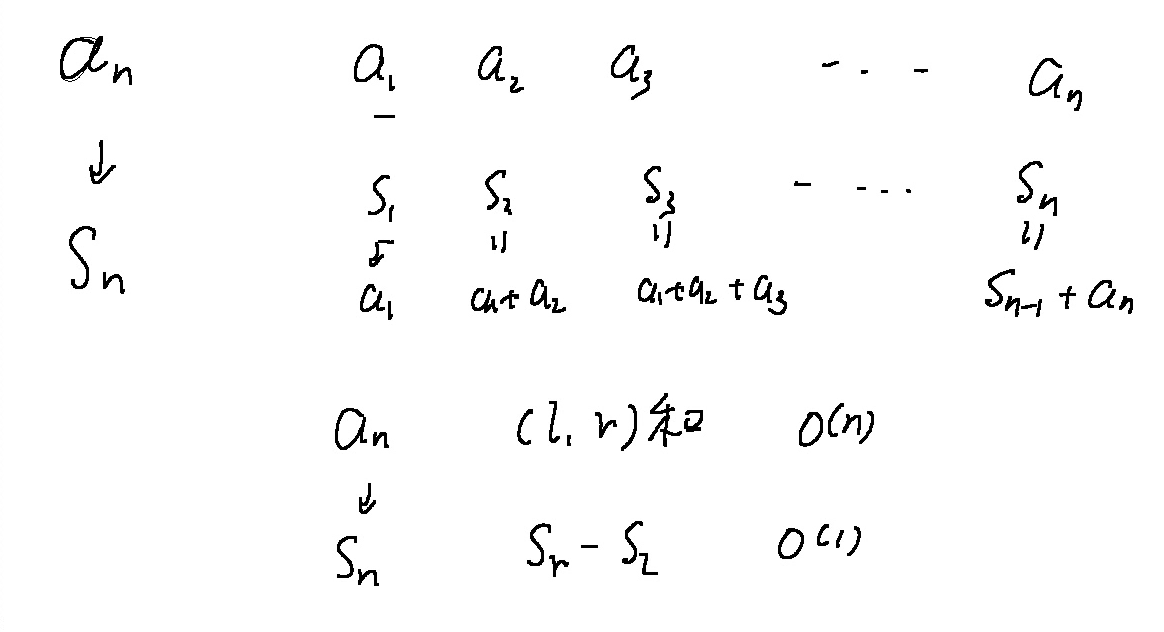 aₙ a₁ a₂ a₃ - . . - aₙ
↓ S₁ S₂ S₃ - - ... Sₙ
Sₙ ↓ = = =
a₁ a₁+a₂ a₁+a₂+a₃ Sₙ₋₁+aₙ
aₙ (l, r)和 O(n)
↓
Sₙ Sᵣ-Sₗ O(1)